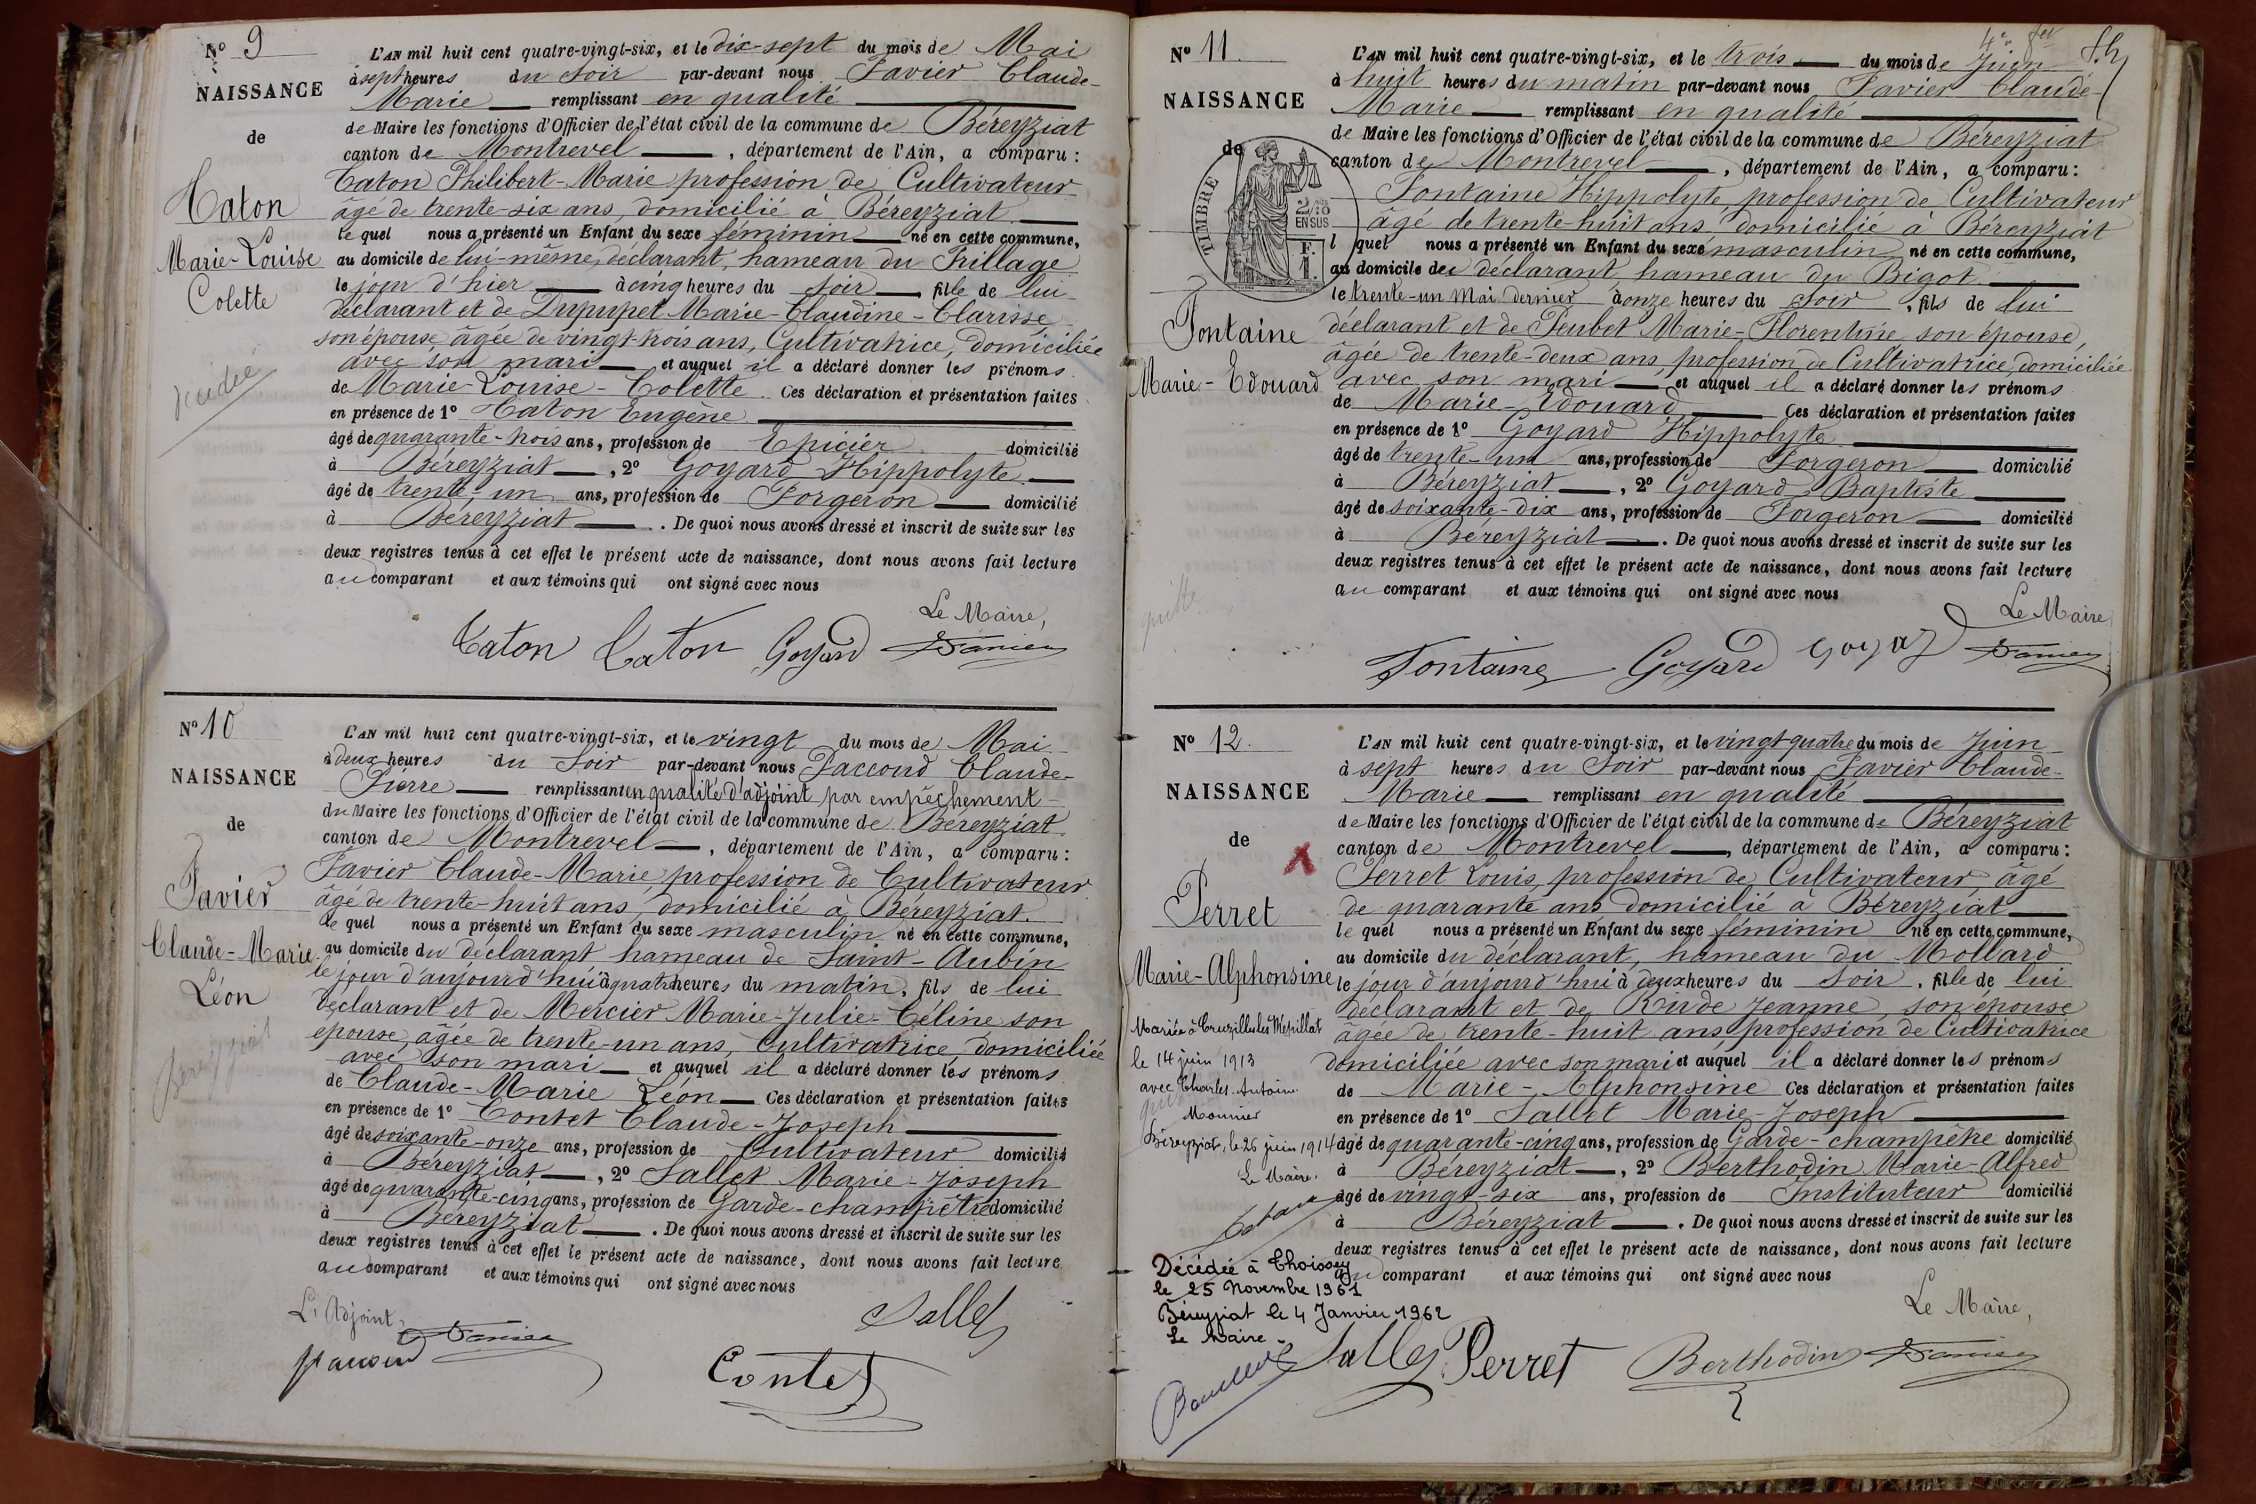 Nº 9
NAISSANCE
de
Caton
Marie-Louise
Colette
décédée
L'AN mil huit cent quatre-vingt-six, et le dix-sept du mois de Mai
à sept heures du soir par-devant nous Favier Claude-
Marie remplissant en qualité
de Maire les fonctions d'Officier de l'état civil de la commune de Béreyziat
canton de Montrevel, département de l'Ain, a comparu :
Caton Philibert-Marie profession de Cultivateur
âgé de trente-six ans, domicilié à Béreyziat
le quel nous a présenté un Enfant du sexe féminin né en cette commune,
au domicile de lui-même, déclarant, hameau du
le jour d'hier à cinq heures du soir fille de lui
déclarant et de Dupupet Marie-Claudine-Clarisse
son épouse âgée de vingt-trois ans, Cultivatrice, domiciliée
avec son mari et auquel il a déclaré donner les prénoms
de Marie-Louise-Colette. Ces déclaration et présentation faites
en présence de 1º Caton Eugène
âgé de quarante-trois ans, profession de Epicier domicilié
à Béreyziat, 2º Goyard Hippolyte
âgé de trente-un ans, profession de Forgeron domicilié
à Béreyziat. De quoi nous avons dressé et inscrit de suite sur les
deux registres tenus à cet effet le présent acte de naissance, dont nous avons fait lecture
au comparant et aux témoins qui ont signé avec nous
Le Maire,
Caton Caton Goyard Favier
Nº 10
NAISSANCE
de
Favier
Claude-Marie
Léon
Béreyziat
L'AN mil huit cent quatre-vingt-six, et le vingt du mois de Mai
à deux heures du soir par-devant nous Paccoud Claude-
Pierre remplissant en qualité d'adjoint par empêchement
du Maire les fonctions d'Officier de l'état civil de la commune de Béreyziat
canton de Montrevel, département de l'Ain, a comparu :
Favier Claude-Marie, profession de Cultivateur
âgé de trente-huit ans, domicilié à Béreyziat.
le quel nous a présenté un Enfant du sexe masculin né en cette commune,
au domicile du déclarant hameau de Saint-Aubin
le jour d'aujourd'hui à quatre heures du matin, fils de lui
déclarant et de Mercier Marie-Julie-Céline son
épouse, âgée de trente-un ans, Cultivatrice, domiciliée
avec son mari et auquel il a déclaré donner les prénoms
de Claude-Marie Léon Ces déclaration et présentation faites
en présence de 1º Contet Claude-Joseph
âgé de soixante-onze ans, profession de Cultivateur domicilié
à Béreyziat, 2º Sallet Marie-Joseph
âgé de quarante-cinq ans, profession de Garde-champêtre domicilié
à Béreyziat. De quoi nous avons dressé et inscrit de suite sur les
deux registres tenus à cet effet le présent acte de naissance, dont nous avons fait lecture
au comparant et aux témoins qui ont signé avec nous
L'Adjoint,
Paccoud Favier Contet Sallet
Nº 11.
NAISSANCE
de
TIMBRE
2/10
EN SUS
F.
1.
Fontaine
Marie-Edouard
L'AN mil huit cent quatre-vingt-six, et le trois du mois de Juin
à huit heures du matin par-devant nous Favier Claude-
Marie remplissant en qualité
de Maire les fonctions d'Officier de l'état civil de la commune de Béreyziat
canton de Montrevel, département de l'Ain, a comparu :
Fontaine Hippolyte, profession de Cultivateur
âgé de trente-huit ans, domicilié à Béreyziat
l quel nous a présenté un Enfant du sexe masculin né en cette commune,
au domicile de déclarant hameau du Bigot
le trente-un Mai dernier à onze heures du soir, fils de lui
déclarant et de Peubet Marie-Florentine, son épouse,
âgée de trente-deux ans, profession de Cultivatrice, domiciliée
avec son mari et auquel il a déclaré donner les prénoms
de Marie-Edouard Ces déclaration et présentation faites
en présence de 1º Goyard Hippolyte
âgé de trente-un ans, profession de Forgeron domicilié
à Béreyziat, 2º Goyard Baptiste
âgé de soixante-dix ans, profession de Forgeron domicilié
à Béreyziat. De quoi nous avons dressé et inscrit de suite sur les
deux registres tenus à cet effet le présent acte de naissance, dont nous avons fait lecture
au comparant et aux témoins qui ont signé avec nous
Le Maire,
Fontaine Goyard Goyard Favier
Nº 12.
NAISSANCE
de
Perret
Marie-Alphonsine
Mariée à Cruzilles les Mépillat
le 14 juin 1913
avec Charles Antoine
Monnier
Béreyziat, le 26 juin 1914
Le Maire.
Décédée à Thoissey
le 25 Novembre 1961
Béreyziat le 4 Janvier 1962
Le Maire
L'AN mil huit cent quatre-vingt-six, et le vingt-quatre du mois de Juin
à sept heures du soir par-devant nous Favier Claude-
Marie remplissant en qualité
de Maire les fonctions d'Officier de l'état civil de la commune de Béreyziat
canton de Montrevel, département de l'Ain, a comparu :
Perret Louis, profession de Cultivateur, âgé
de quarante ans domicilié à Béreyziat
le quel nous a présenté un Enfant du sexe féminin né en cette commune,
au domicile du déclarant, hameau du Mollard
le jour d'aujourd'hui à deux heures du soir, fille de lui
déclarant et de Rude Jeanne, son épouse
âgée de trente-huit ans profession de Cultivatrice
domiciliée avec son mari et auquel il a déclaré donner les prénoms
de Marie-Alphonsine Ces déclaration et présentation faites
en présence de 1º Sallet Marie-Joseph
âgé de quarante-cinq ans, profession de Garde-champêtre domicilié
à Béreyziat, 2º Berthodin Marie-Alfred
âgé de vingt-six ans, profession de Instituteur domicilié
à Béreyziat. De quoi nous avons dressé et inscrit de suite sur les
deux registres tenus à cet effet le présent acte de naissance, dont nous avons fait lecture
au comparant et aux témoins qui ont signé avec nous
Le Maire,
Sallet Perret Berthodin Favier